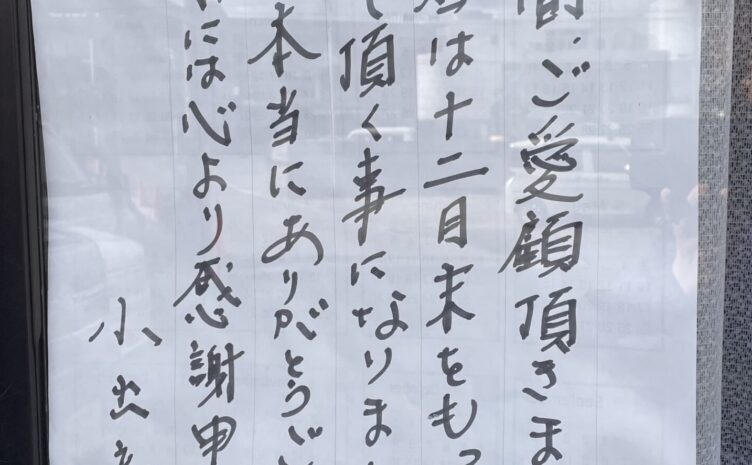 間、ご愛顧頂きま
は十二月末をもっ
て頂く事になりまし
本当にありがとうござ
には心より感謝申
小忠